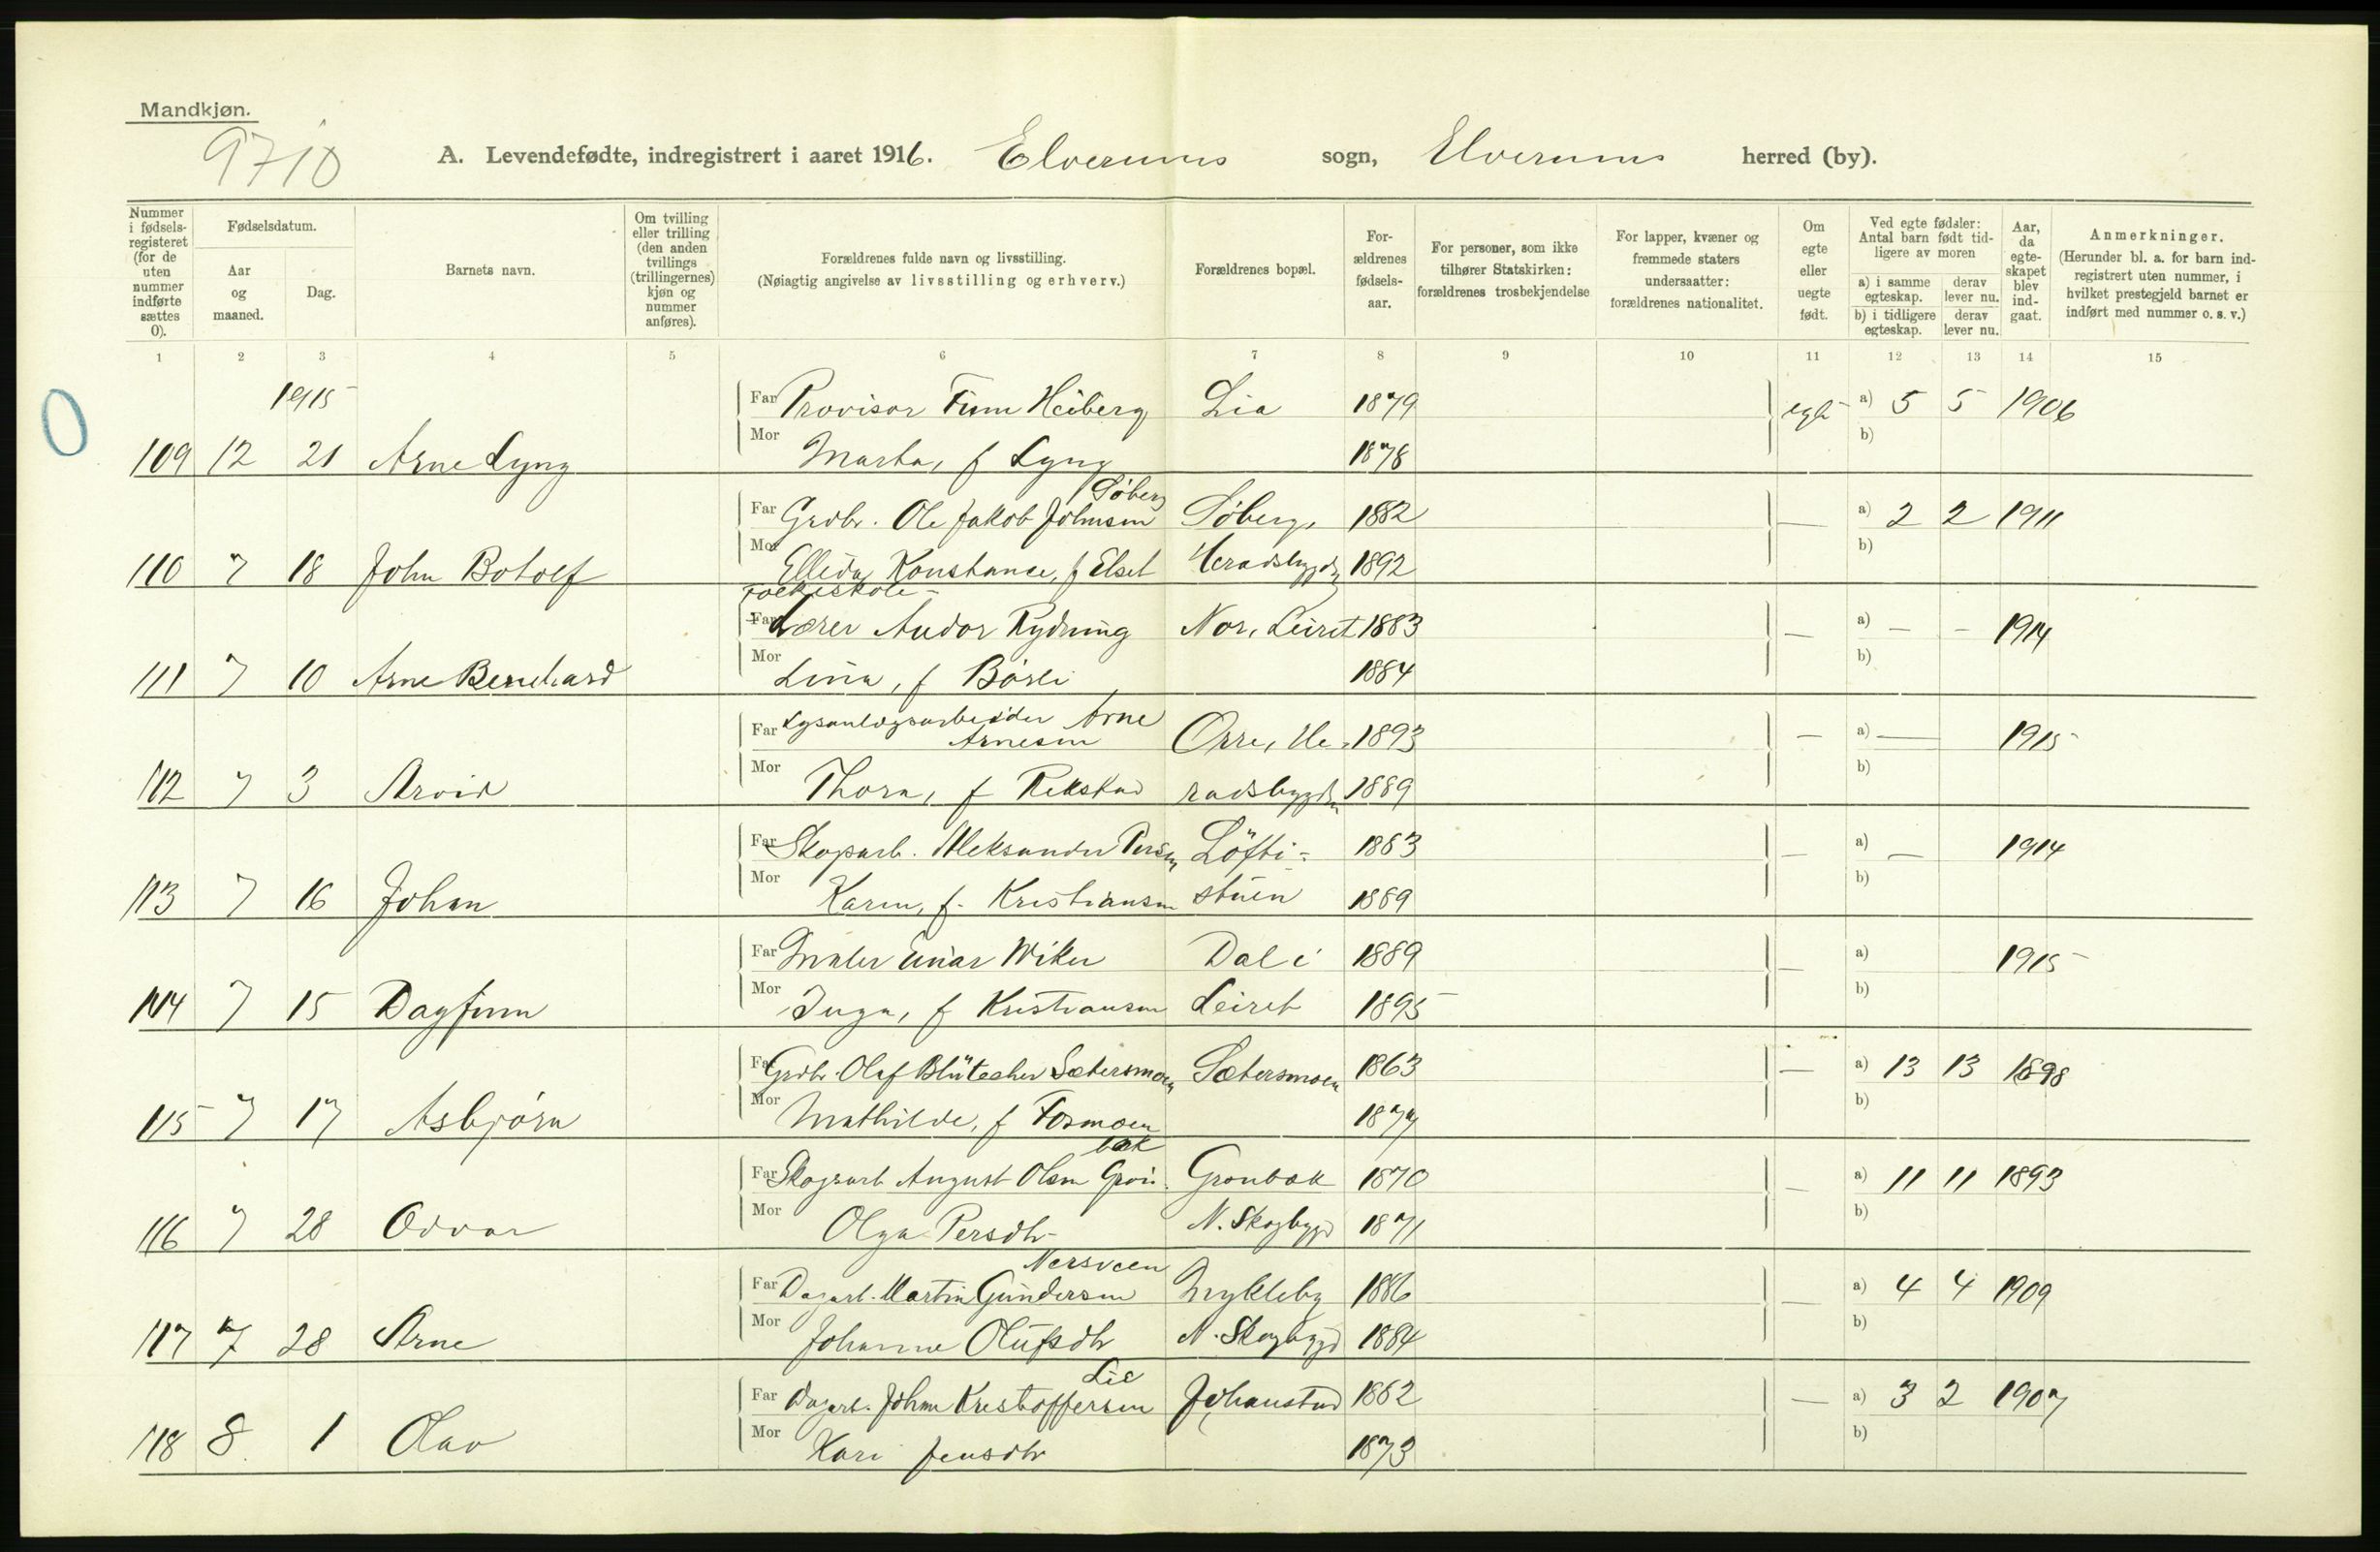 Mandkjøn.
9710
A. Levendefødte, indregistrert i aaret 1916. Elverums sogn, Elverums herred (by).
Nummer i fødsels-registeret (for de uten nummer indførte sættes 0).
Fødselsdatum.
Aar og maaned.
Dag.
Barnets navn.
Om tvilling eller trilling (den anden tvillings (trillingernes) kjøn og nummer anføres).
Forældrenes fulde navn og livsstilling.
(Nøiagtig angivelse av livsstilling og erhverv.)
Forældrenes bopæl.
For-ældrenes fødsels-aar.
For personer, som ikke tilhører Statskirken: forældrenes trosbekjendelse
For lapper, kvæner og fremmede staters undersaatter: forældrenes nationalitet.
Om egte eller uegte født.
Ved egte fødsler: Antal barn født tid-ligere av moren
a) i samme egteskap.
derav lever nu.
b) i tidligere egteskap.
derav lever nu.
Aar, da egte-skapet blev ind-gaat.
Anmerkninger.
(Herunder bl. a. for barn ind-registrert uten nummer, i hvilket prestegjeld barnet er indført med nummer o. s. v.)
1 2 3 4 5 6 7 8 9 10 11 12 13 14 15
0
1915
Far Provisor Finn Heiberg Lia 1879 egte a) 5 5 1906
109 12 21 Arne Lyng Mor Marta, f Lyng 1878 b)
Søberg
Far Grdbr. Ole Jakob Johnsen Søberg, 1882 — a) 2 2 1911
110 7 18 John Botolf Mor Ellida Konstance, f Elset Heradsbygden 1892 b)
Folkeskole-
Far Lærer Andor Rydning Nor, Leiret 1883 — a) — — 1914
111 7 10 Arne Bernhard Mor Lina, f Børli 1884 b)
Far Lysanlægsarbeider Arne
Arnesen Orre, He- 1893 — a) — 1915
112 7 3 Arvid Mor Thora, f Rekstad radsbygden 1889 b)
Far Skogsarb. Aleksander Persen Löfti- 1883 — a) — 1914
113 7 16 Johan Mor Karen, f. Kristiansen stuen 1889 b)
Far Maler Einar Wiker Dal i 1889 — a) 1915
114 7 15 Dagfinn Mor Inga, f Kristiansen Leiret 1895 b)
Far Grdbr. Olaf Blütecher Sætersmoen Sætersmoen 1863 — a) 13 13 1898
115 7 17 Asbjørn Mor Mathilde, f Formoen 1877 b)
bæk
Far Skogsarb August Olsen Grøn- Grønbæk 1870 — a) 11 11 1893
116 7 28 Odvar Mor Olga Persdtr N. Skogbygd 1871 b)
Nersveen
Far Dagarb. Martin Gundersen Mykleby 1886 — a) 4 4 1909
117 7 28 Arne Mor Johanne Olufsdtr N. Skogbygd 1884 b)
Lie
Far Dagarb. Johan Kristoffersen Johanstad 1862 — a) 3 2 1907
118 8 1 Olav Mor Kari Jensdtr 1873 b)